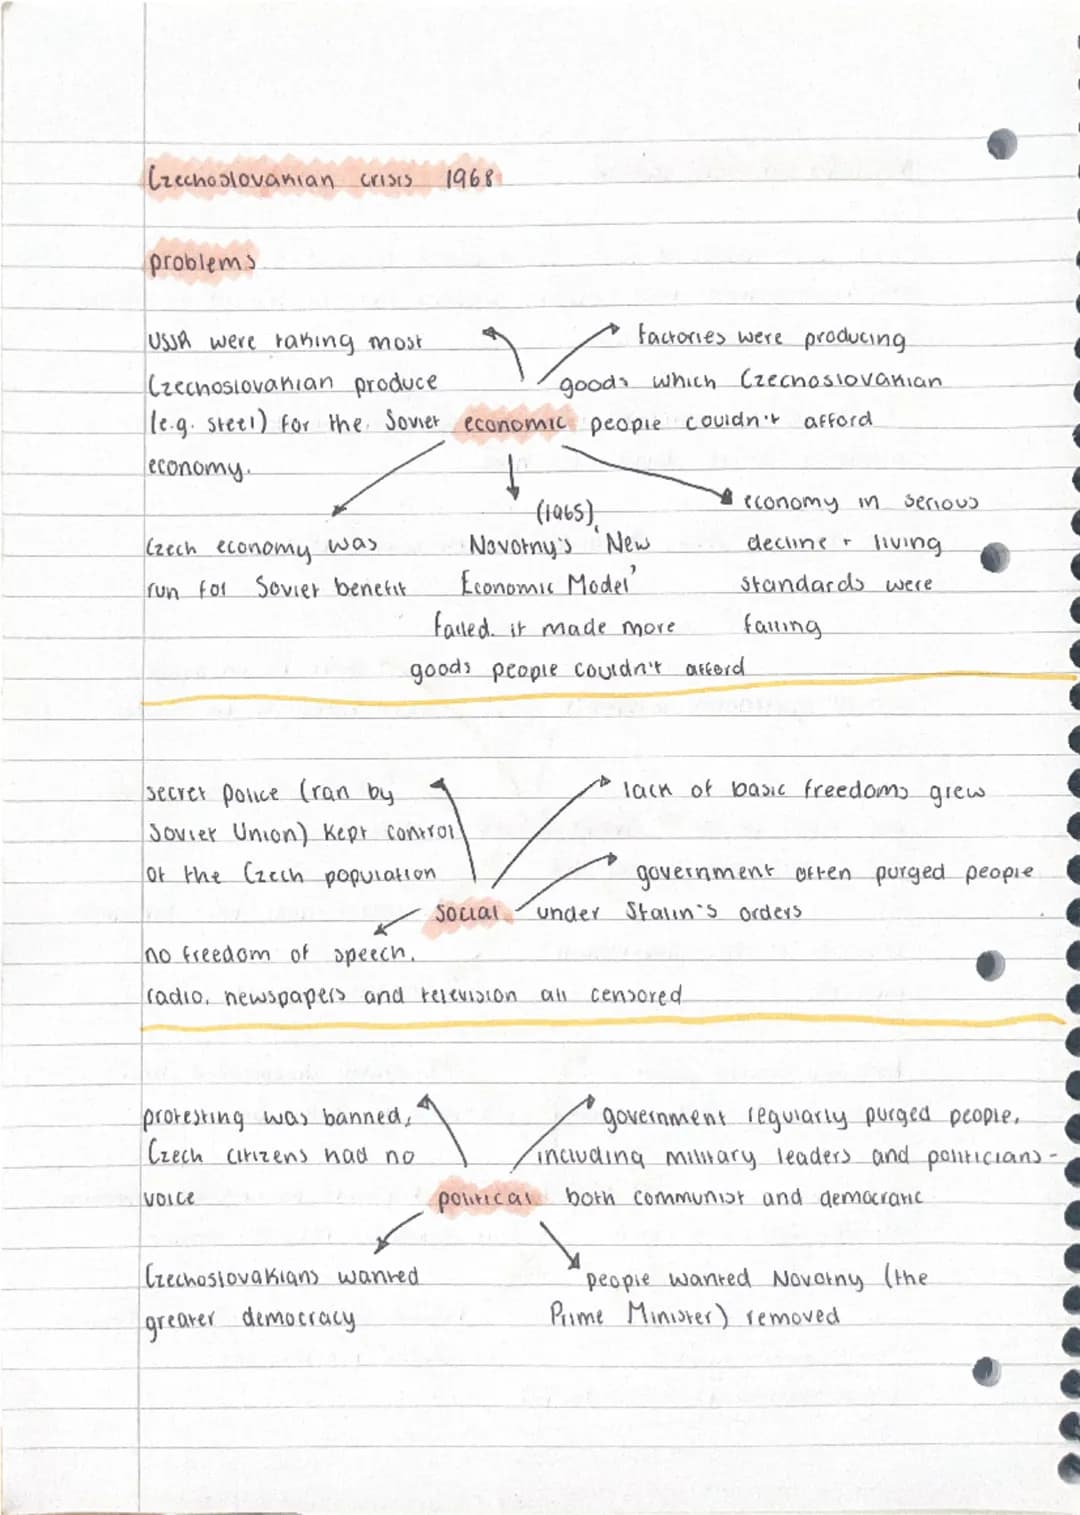 Czechoslovakian crisis 1968
problems
USSR were taking most
Czechoslovakian produce
(e.g. steel) for the Soviet
economy.
factories were producing
goods which Czechoslovakian
people couldn't afford
economic
Czech economy was
run for Soviet benefit
(1965)
Novotny's 'New
Economic Model'
failed. it made more
goods people couldn't afford
economy in serious
decline + living
standards were
falling
secret police (ran by
Soviet Union) kept control
of the Czech population
lack of basic freedoms grew
government often purged people
under Stalin's orders
social
no freedom of speech.
radio, newspapers and television all censored
protesting was banned,
Czech citizens had no
voice
government regularly purged people,
including military leaders and politicians -
both communist and democratic
political
Czechoslovakians wanted
greater democracy
people wanted Novotny (the
Prime Minister) removed